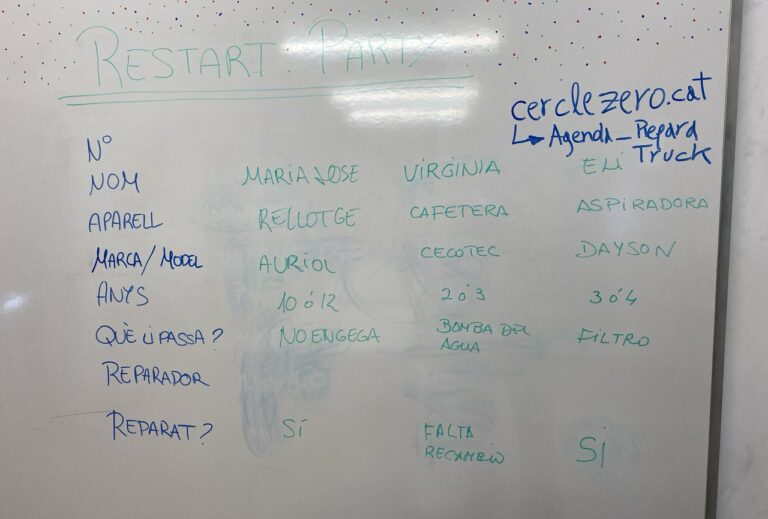 RESTART PARTY
cerclezero.cat
↳ Agenda - Repara
Truck
Nº
NOM MARIA JOSE VIRGINIA ELI
APARELL RELLOTGE CAFETERA ASPIRADORA
MARCA/MODEL AURIOL CECOTEC DAYSON
ANYS 10 ó 12 2 ó 3 3 ó 4
QUÈ LI PASSA? NO ENGEGA BOMBA DEL AGUA FILTRO
REPARADOR
REPARAT? SÍ FALTA RECAMBIO SI